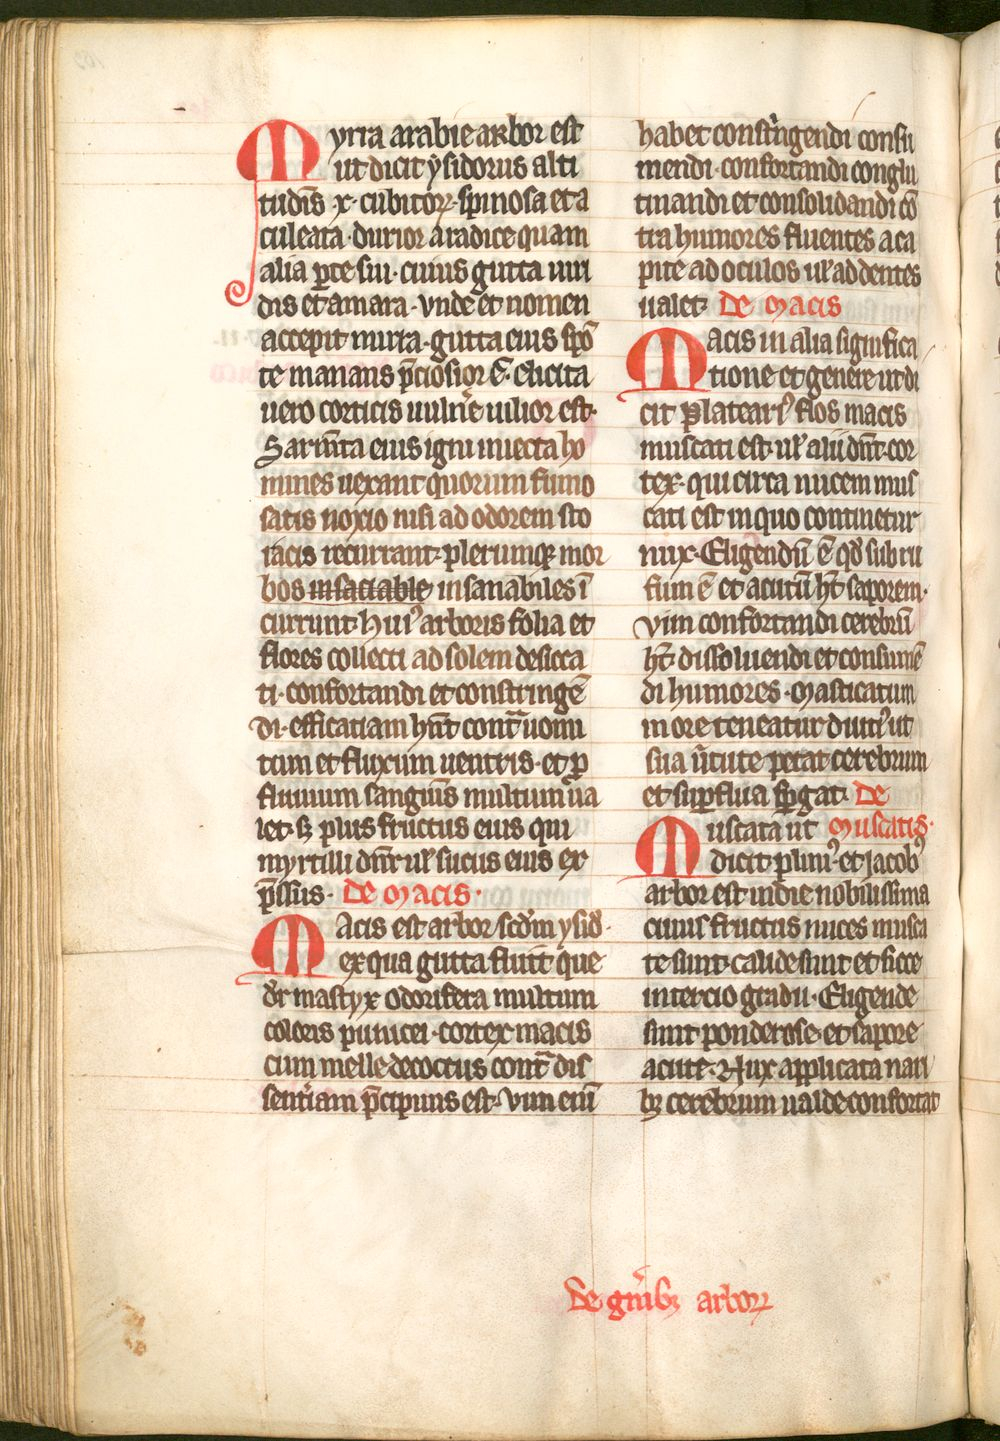 Myrra arabie arbor est
ut dicit ysidorus alti
tudīs x. cubitoꝝ. spinosa et a
culeata. durior a radice quam
alia ꝑte sui. cuius gutta uiri
dis et amara. vnde et nomen
accepit mirra. gutta eius spō
te manans p̄ciosior ē. elicita
uero corticis uulne̅ uilior est.
Sarm̅ta eius igni iniecta ho
mines uexant quorum fumo
satis noxio nisi ad odorem sto
racis recurrant. plerumqꝫ mor
bos insaciable insanabiles ī
currunt. Huiꝰ arboris folia et
flores collecti ad solem desicca
ti. confortandi et constringē
di. efficatiam hn̅t cont̄ uomi
tum et fluxum uentris. et ꝓ
fluuium sanguīs multum ua
let. sꝫ plus fructus eius qui
myrtilli dn̅r uł sucus eius ex
p̄ssus. De Macis.
Macis est arbor scd̅m ysid̅.
ex qua gutta fluit que
dr̅ mastyx odorifera multum
coloris punicei. cortex macis
cum melle decoctus cont̄ dis
sent̅iam p̄cipuus est. vim enī
habet const̅ngendi consu
mendi. confortandi conglu
tinandi et consolidandi cō
tra humores fluentes a ca
pite ad oculos uł ad dentes
ualet. De Macis
Macis in alia significa
tione et genere ut di
cit Platearꝰ flos macis
muscati est uł alii dn̅t. cor
tex. qui circa nucem mus
cati est in quo continetur
nux. Eligendū ē qd̅ subru
fum ē et acutū hꝫ saporem.
vim confortandi cerebrū
hꝫ dissoluendi et consumē
di humores. Masticatum
in ore teneatur diutiꝰ ut
sua u̅tute petat cerebrum
et suꝑflua spgat. De
Muscata ut Muscatis.
dicit pliniꝰ. et Jacobꝰ
arbor est indie nobilissima
cuius fructus nuces musca
te sunt. calide sunt et sicce
in tercio gradu. Eligende
sunt ponderose. et sapore
acute. Nux applicata nari
bꝫ cerebrum ualde confortat
De gn̅ibꝫ arboꝝ